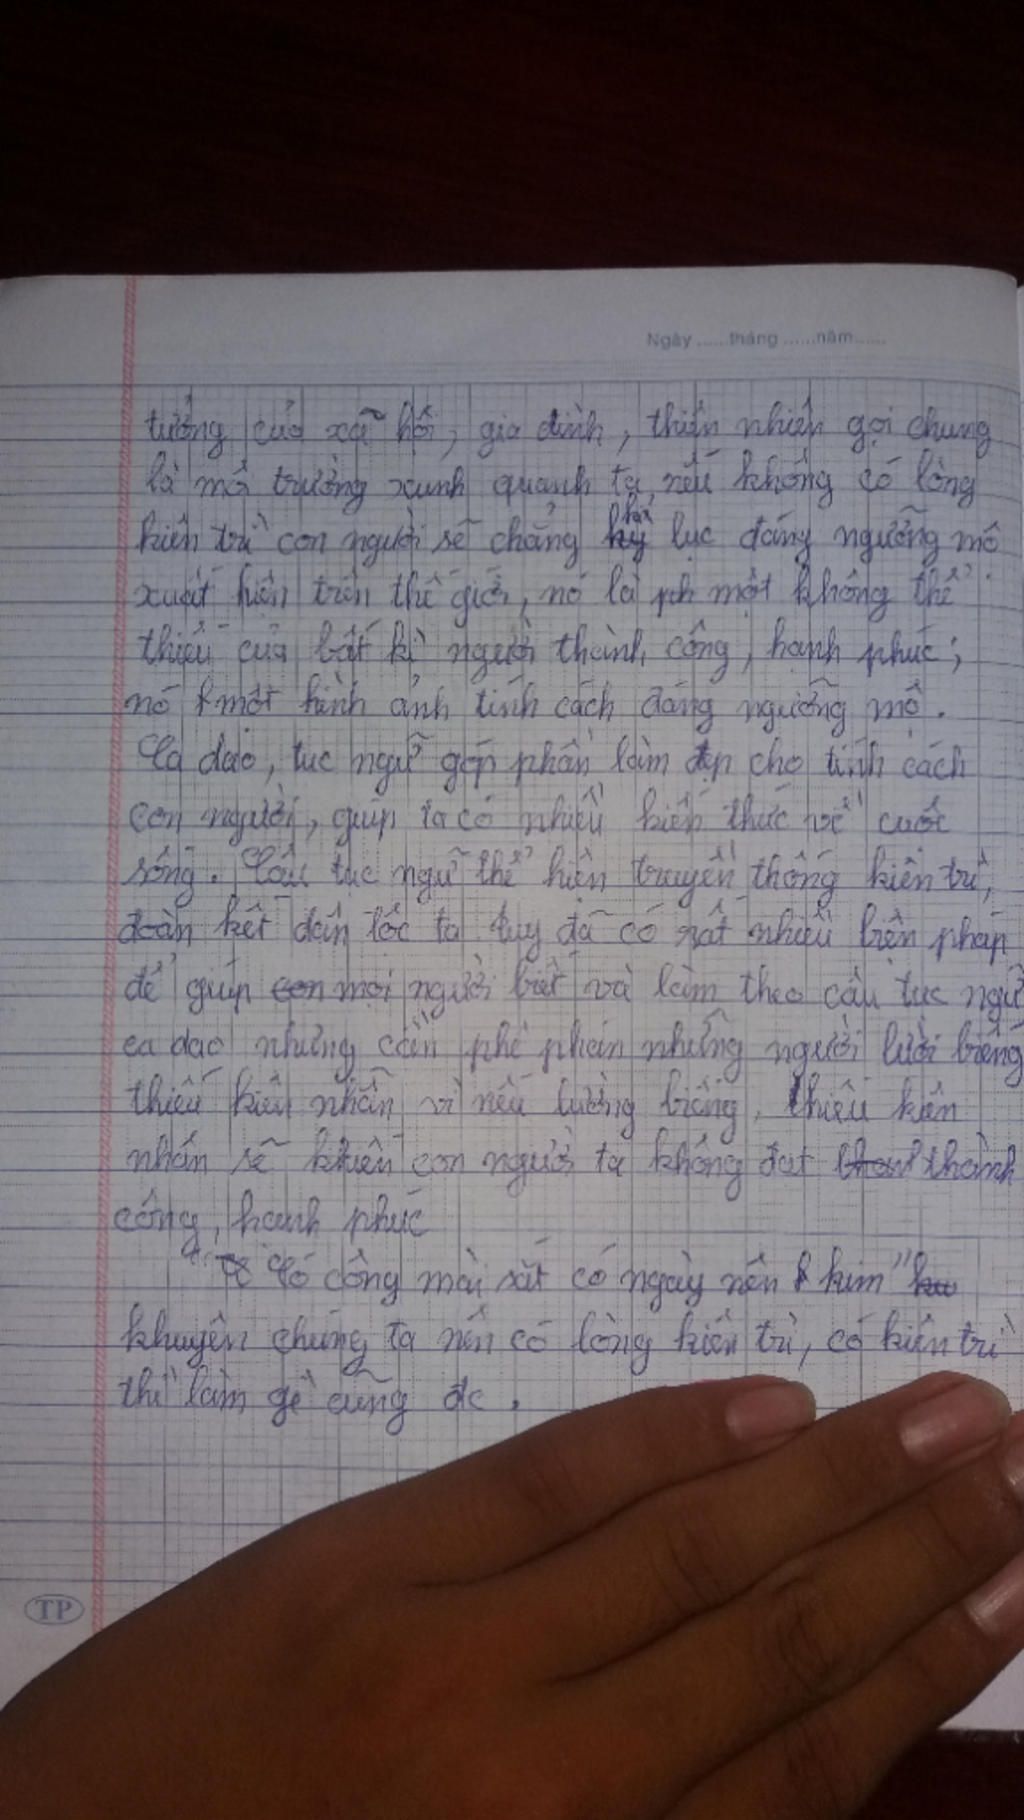 Ngày ......tháng ......năm......
tưởng của xã hội, gia đình, thiên nhiên gọi chung
là mô trường xunh quanh ta, nếu không có lòng
kiên trì con người sẽ chẳng kỷ lục đáng ngưỡng mộ
xuất hiện trên thế giới, nó là một không thể
thiếu của bất kì người thành công, hạnh phúc;
nó một hình ảnh tính cách đáng ngưỡng mộ.
Ca dao, tục ngữ góp phần làm đẹp cho tính cách
con người, giúp ta có nhiều kiến thức về cuộc
sống. Câu tục ngữ thể hiện truyền thống kiên trì,
đoàn kết dân tộc ta tuy đã có rất nhiều biện pháp
để giúp con mọi người biết và làm theo câu tục ngữ
ca dao nhưng cần phê phán những người lười biếng
thiếu kiên nhẫn vì nếu lường biếng, thiếu kiên
nhẫn sẽ khiến con người ta không đạt thành
công, hạnh phúc
" Có công mài sắt có ngày nên kim "
khuyên chúng ta nên có lòng kiên trì, có kiên trì
thì làm gì cũng đc.
TP